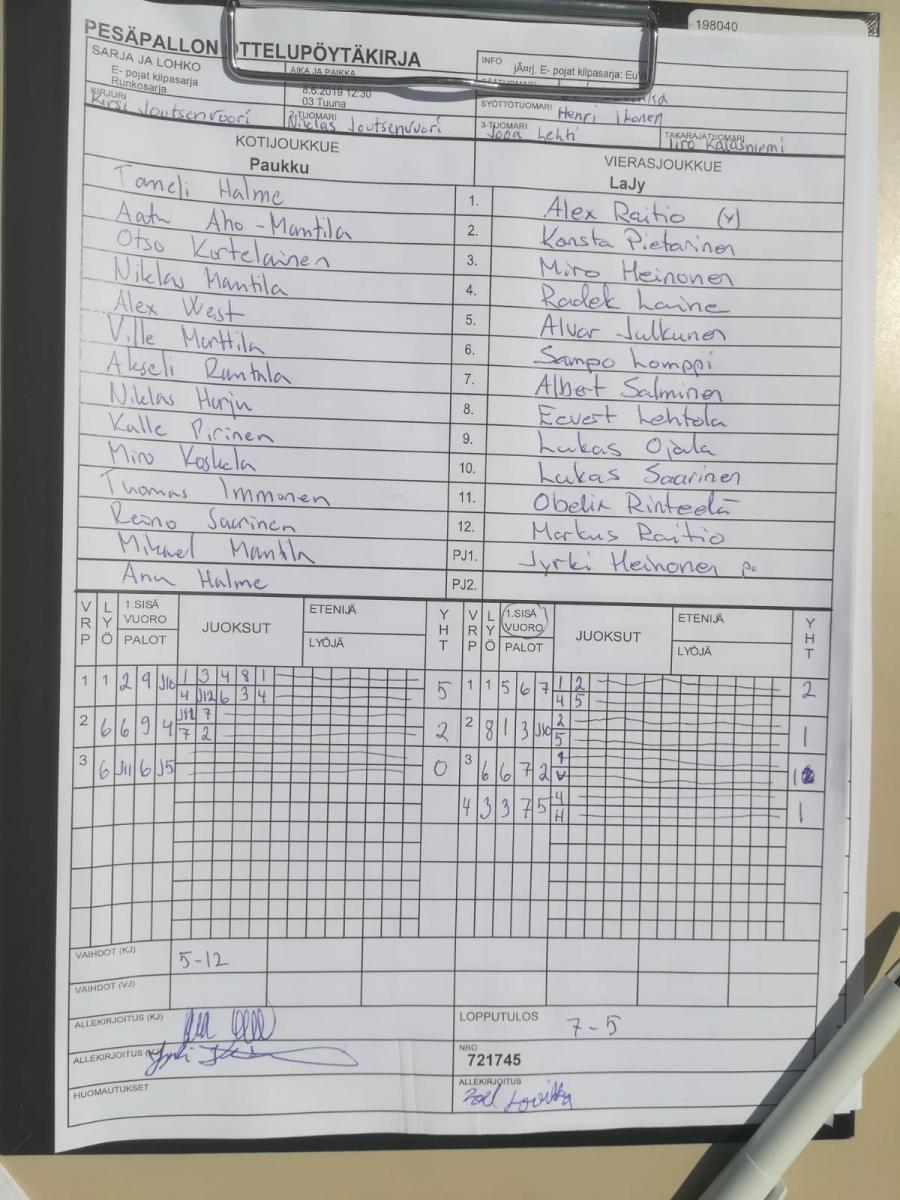 198040
PESÄPALLON OTTELUPÖYTÄKIRJA
SARJA JA LOHKO
E- pojat kilpasarja
Runkosarja
AIKA JA PAIKKA
8.6.2019 12:30
03 Tuuna
INFO
jÄ¤rj. E- pojat kilpasarja: Eu
SYÖTTÖTUOMARI Henri Ikonen
KIRJURI Kirsi Joutsenvuori
2-TUOMARI Niklas Joutsenvuori
3-TUOMARI Jona Lehti
TAKARAJATUOMARI Iiro Kalasniemi
KOTIJOUKKUE
Paukku
VIERASJOUKKUE
LaJy
Taneli Halme 1. Alex Raitio (v)
Aatu Aho-Mantila 2. Konsta Pietarinen
Otso Kortelainen 3. Miro Heinonen
Niklas Mantila 4. Radek Laine
Alex West 5. Alvar Julkunen
Ville Marttila 6. Sampo Lomppi
Akseli Rantala 7. Albert Salminen
Niklas Harju 8. Eevert Lehtola
Kalle Pirinen 9. Lukas Ojala
Miro Koskela 10. Lukas Saarinen
Thomas Immonen 11. Obelix Rinteelä
Reino Saarinen 12. Markus Raitio
Mikael Mantila PJ1. Jyrki Heinonen
Anu Halme PJ2.
VRP LYÖ 1.SISÄ VUORO PALOT JUOKSUT ETENIJÄ LYÖJÄ YHT VRP LYÖ 1.SISÄ VUORO PALOT JUOKSUT ETENIJÄ LYÖJÄ YHT
1 1 2 9 J10 1 3 4 8 1 5 1 1 5 6 7 1 2 2
4 J12 6 3 4 4 5
2 6 6 9 4 J12 7 2 2 8 1 3 J10 2 1
7 2 5
3 6 J11 6 J5 0 3 6 6 7 2 1 1
V
4 3 3 7 5 4 1
H
VAIHDOT (KJ) 5-12
VAIHDOT (VJ)
ALLEKIRJOITUS (KJ)
LOPPUTULOS 7-5
ALLEKIRJOITUS (VJ)
NRO
721745
HUOMAUTUKSET
ALLEKIRJOITUS